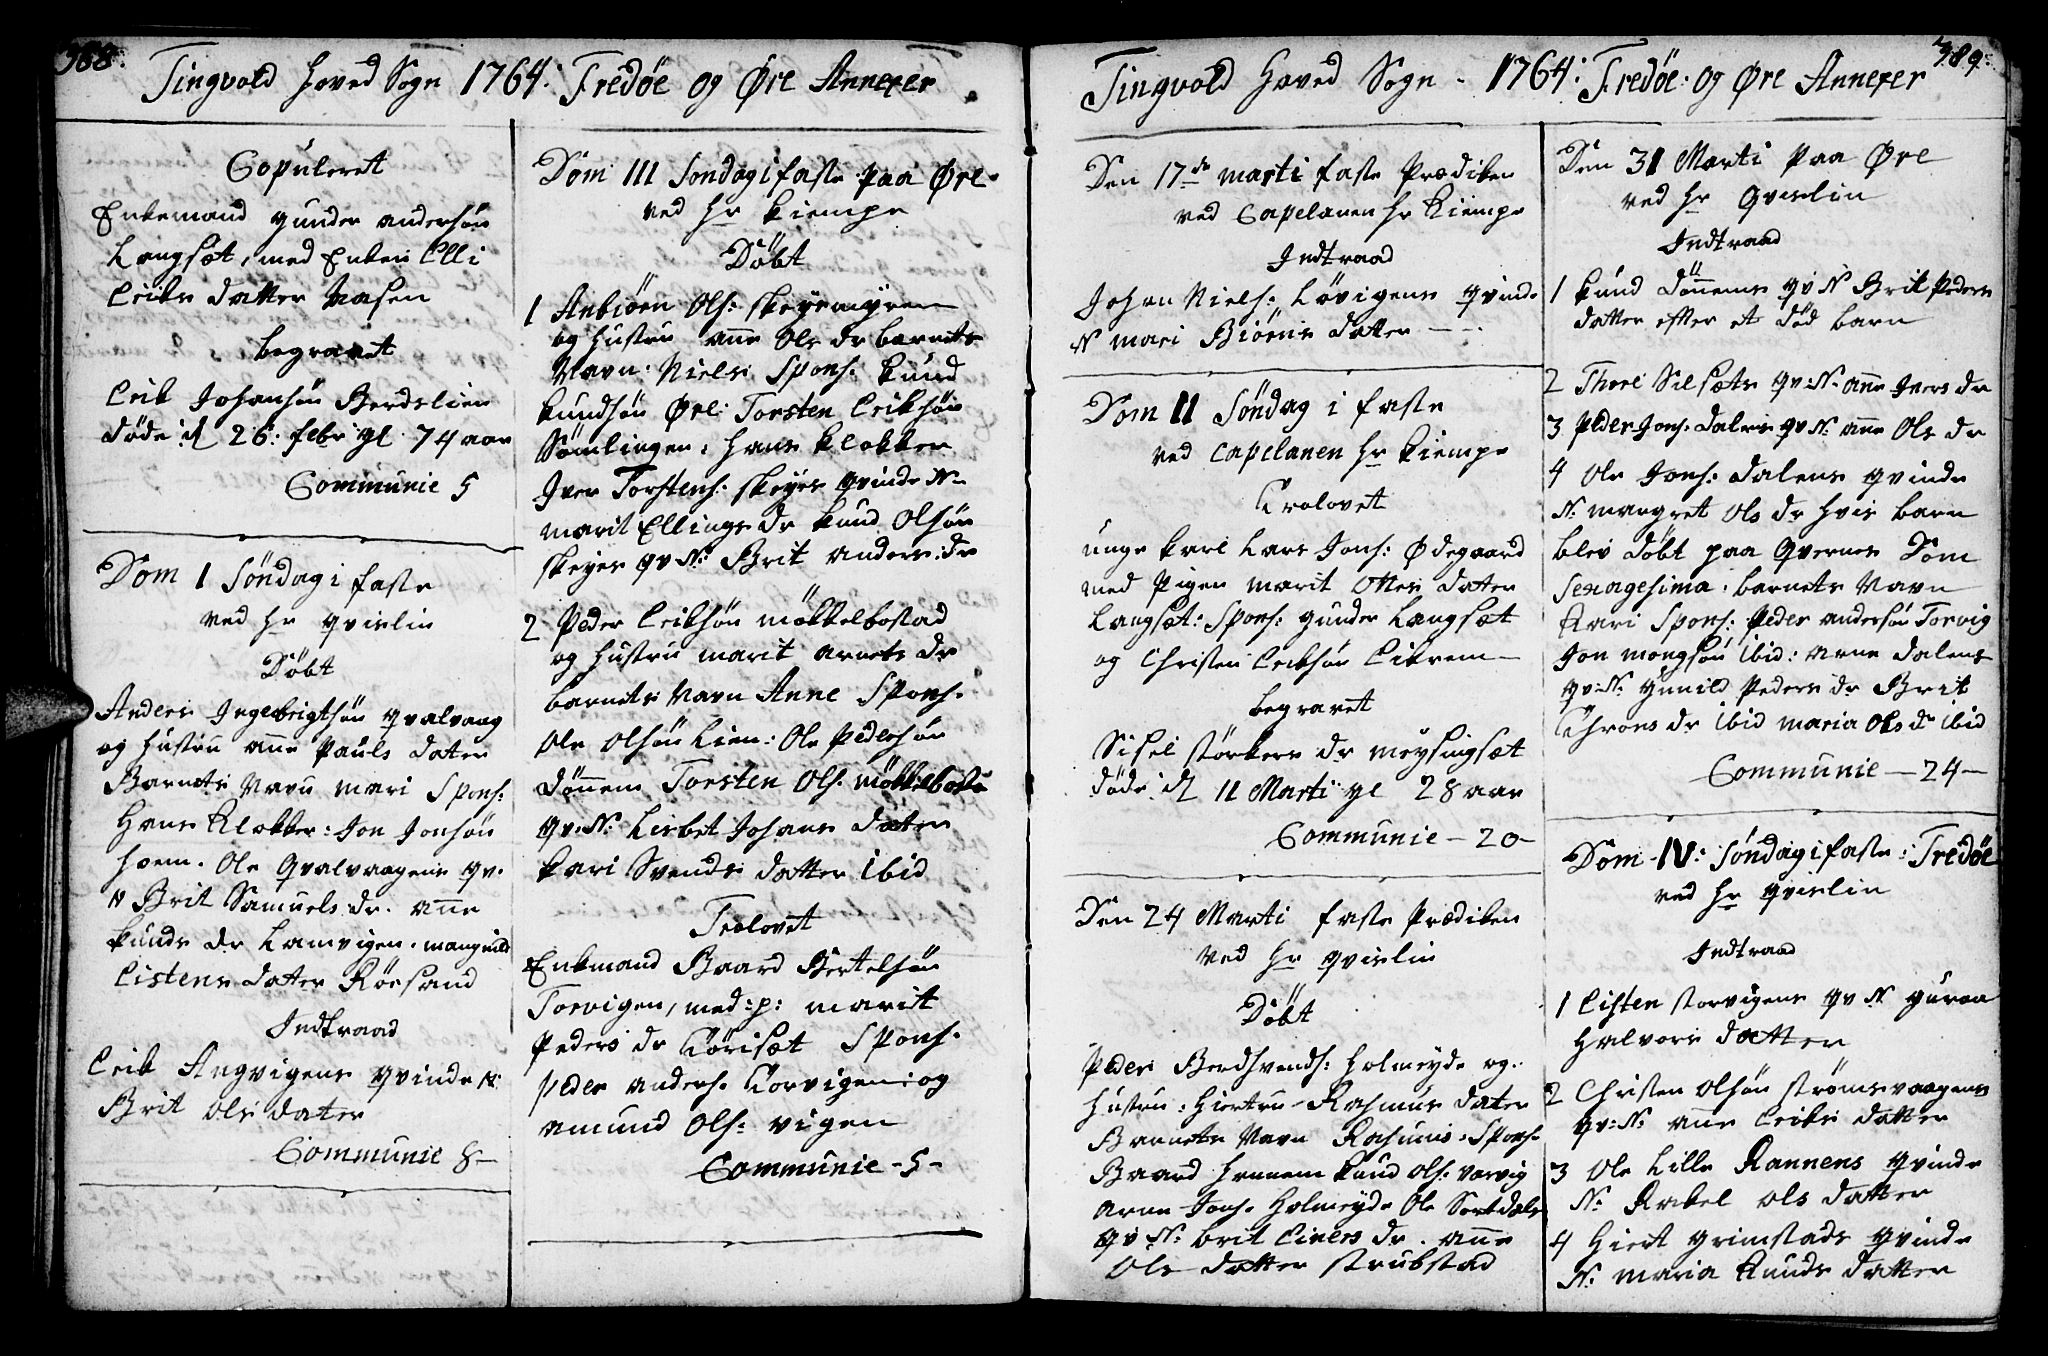 388.
Tingvold Hoved Sogn 1764: Fredöe og Øre Annexer
Copuleret
Enkemand Gunder andersøn
Langsæt, med Enken Elli
Eriks datter Aasen
begravet
Erik Johansøn Berdslien
døde d 26: febr gl 74 aar
Communie 5
Dom 1 Søndag i faste
ved Hr Qvislin
Döbt
Anders Ingebrigtsøn Qvalvaag
og Hustru añe Pauls dater
Barnets Navn mari Spons:
Hans Klokker: Jon Jonsøn
Hoem. Ole Qvalvaagens qv.
N Brit Samuels dr. añe
Knuds dr Lamvigen. mangnild
Eistens datter Röesand
Indtraad
Erik Angvigens Qvinde N:
Brit Ols dater
Communie 8
Dom III Søndag i faste paa Øre
ved Hr Kiempe
Döbt
1 Anbiörn Ols: Skeysmyren
og Hustru ane Ols dr barnets
Navn: Niels Spons: Knud
Knudsøn Øre: Torsten Eriksøn
Sømlingen: Hans Klokker
Iver Torstens: Skeyes Qvinde N:
marit Ellings dr Knud Olsøn
Skeyes qv N: Brit anders: dr
2 Peder Eriksøn Mökkelbostad
og Hustru marit arnets dr
barnets Navn Anne Spons.
Ole Olsøn Lien: Ole Pedersøn
dönnem Torsten Ols. Mökkelbosta
qv: N: Lisbet Johans dater
Kari Svends datter ibid
Trolovet
Enkmand Baard Bertelsøn
Torvigen, med: p: marit
Peders dr Törisæt Spons.
Peder anders. Torvigen: og
amund Ols: vigen
Communie - 5 -
389.
Tingvold Hoved Sogn - 1764: Fredöe: og Øre Annexer
Den 17de marti faste Prædiken
ved Capelanen Hr Kiempe
Indtraad
Johan Niels: Lövigens qvinde
N mari Biörns datter
Dom II Söndag i faste
ved Capelanen Hr Kiempe
Trolovet
unge Karl Lars Jons: Ödegaard
med Pigen marit Ottes dater
Langsæt: Spons: Gunder Langsæt
og Christen Eriksøn Eikrem
begravet
Sisel Störkers dr meysingsæt
döde d 11 Marti gl 28 aar
Communie - 20 -
Den 24 Marti faste Prædiken
ved Hr Qvislin
Döbt
Peder Berdsvends: Holmeyde og
Hustru: Hiertru Rasmus dater
Barnets Navn Rasmus: Spons.
Baard Hennem Knud Ols: Varvig
Arne Jons. Holmeyde Ole
qv N: Brit Einers dr. añe
Ols datter Strubstad
Den 31 Marti paa Øre
ved Hr Qvislin
Indtraad
1 Knud Dönnems qv N Brit Peders
datter efter et död barn
2 Thore Silsæts qv: N: añe Ivers dr
3 Peder Jons. Dalens qv N: añe Ols dr
4 Ole Jons: Dalens Qvinde
N: margret Ols dr Hvis barn
blev döbt paa Qvernes Dom
Sexagesima. barnets Navn
Kari Spons: Peder andersøn Torvig
Jon mongsøn ibid: arne dalens
qv: N: Gunild Peders dr Brit
Throns dr ibid maria Ols dr ibid
Communie - 24 -
Dom IV: Söndag i faste: Fredöe
ved Hr Qvislin
Indtraad
1 Eisten Storvigens qv N Guroe
Halvors datter
2 Christen Olsøn Strömsvaagens
qv: N: añe Eriks datter
3 Ole Lille Rannens Qvinde
N: Rakel Ols datter
4 Hiert Grimstads Qvinde
N: Maria Knuds datter